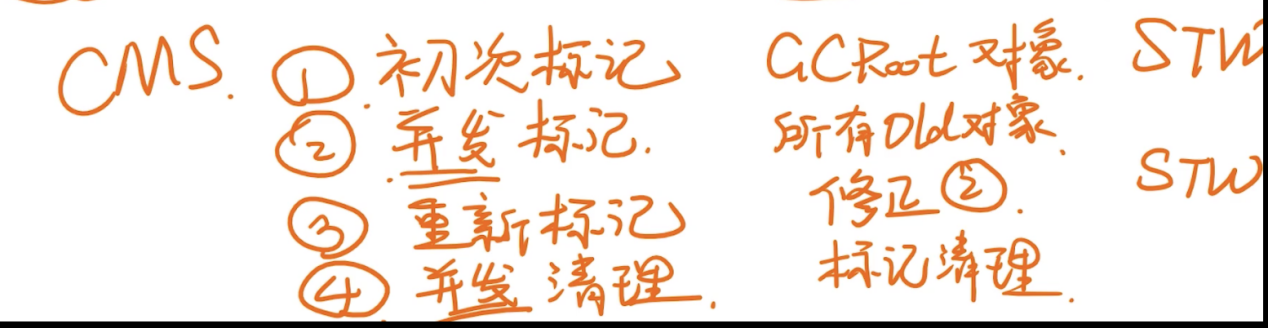 CMS. ① 初次标记 GCRoot 对象. STW
② 并发标记. 所有Old对象.
③ 重新标记 修正②. STW
④ 并发清理. 标记清理.